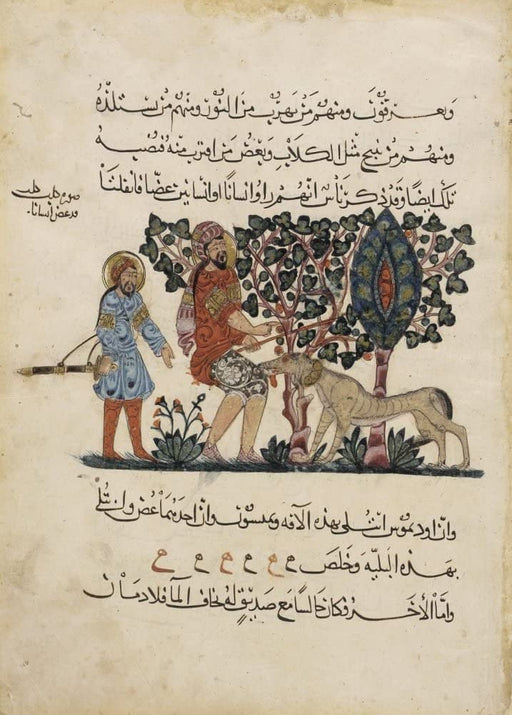 ويعرقون ومنهم من يهرب من النور ومنهم من يستلذه
ومنهم من ينبح مثل الكلاب ويعض من اقترب منه فيصيبه
تلك ايضا وقد ذكر ناس انهم راوا انسانا او انسانين عضا فانفلتا
صورة كلب كلب
قد عض انسانا
وان اوديموس ابتلى بهذه الافه وان احدهما عض وابتلى
بهذه البليه وخلص
واما الاخر فكان جالسا مع صديق له فخاف الما